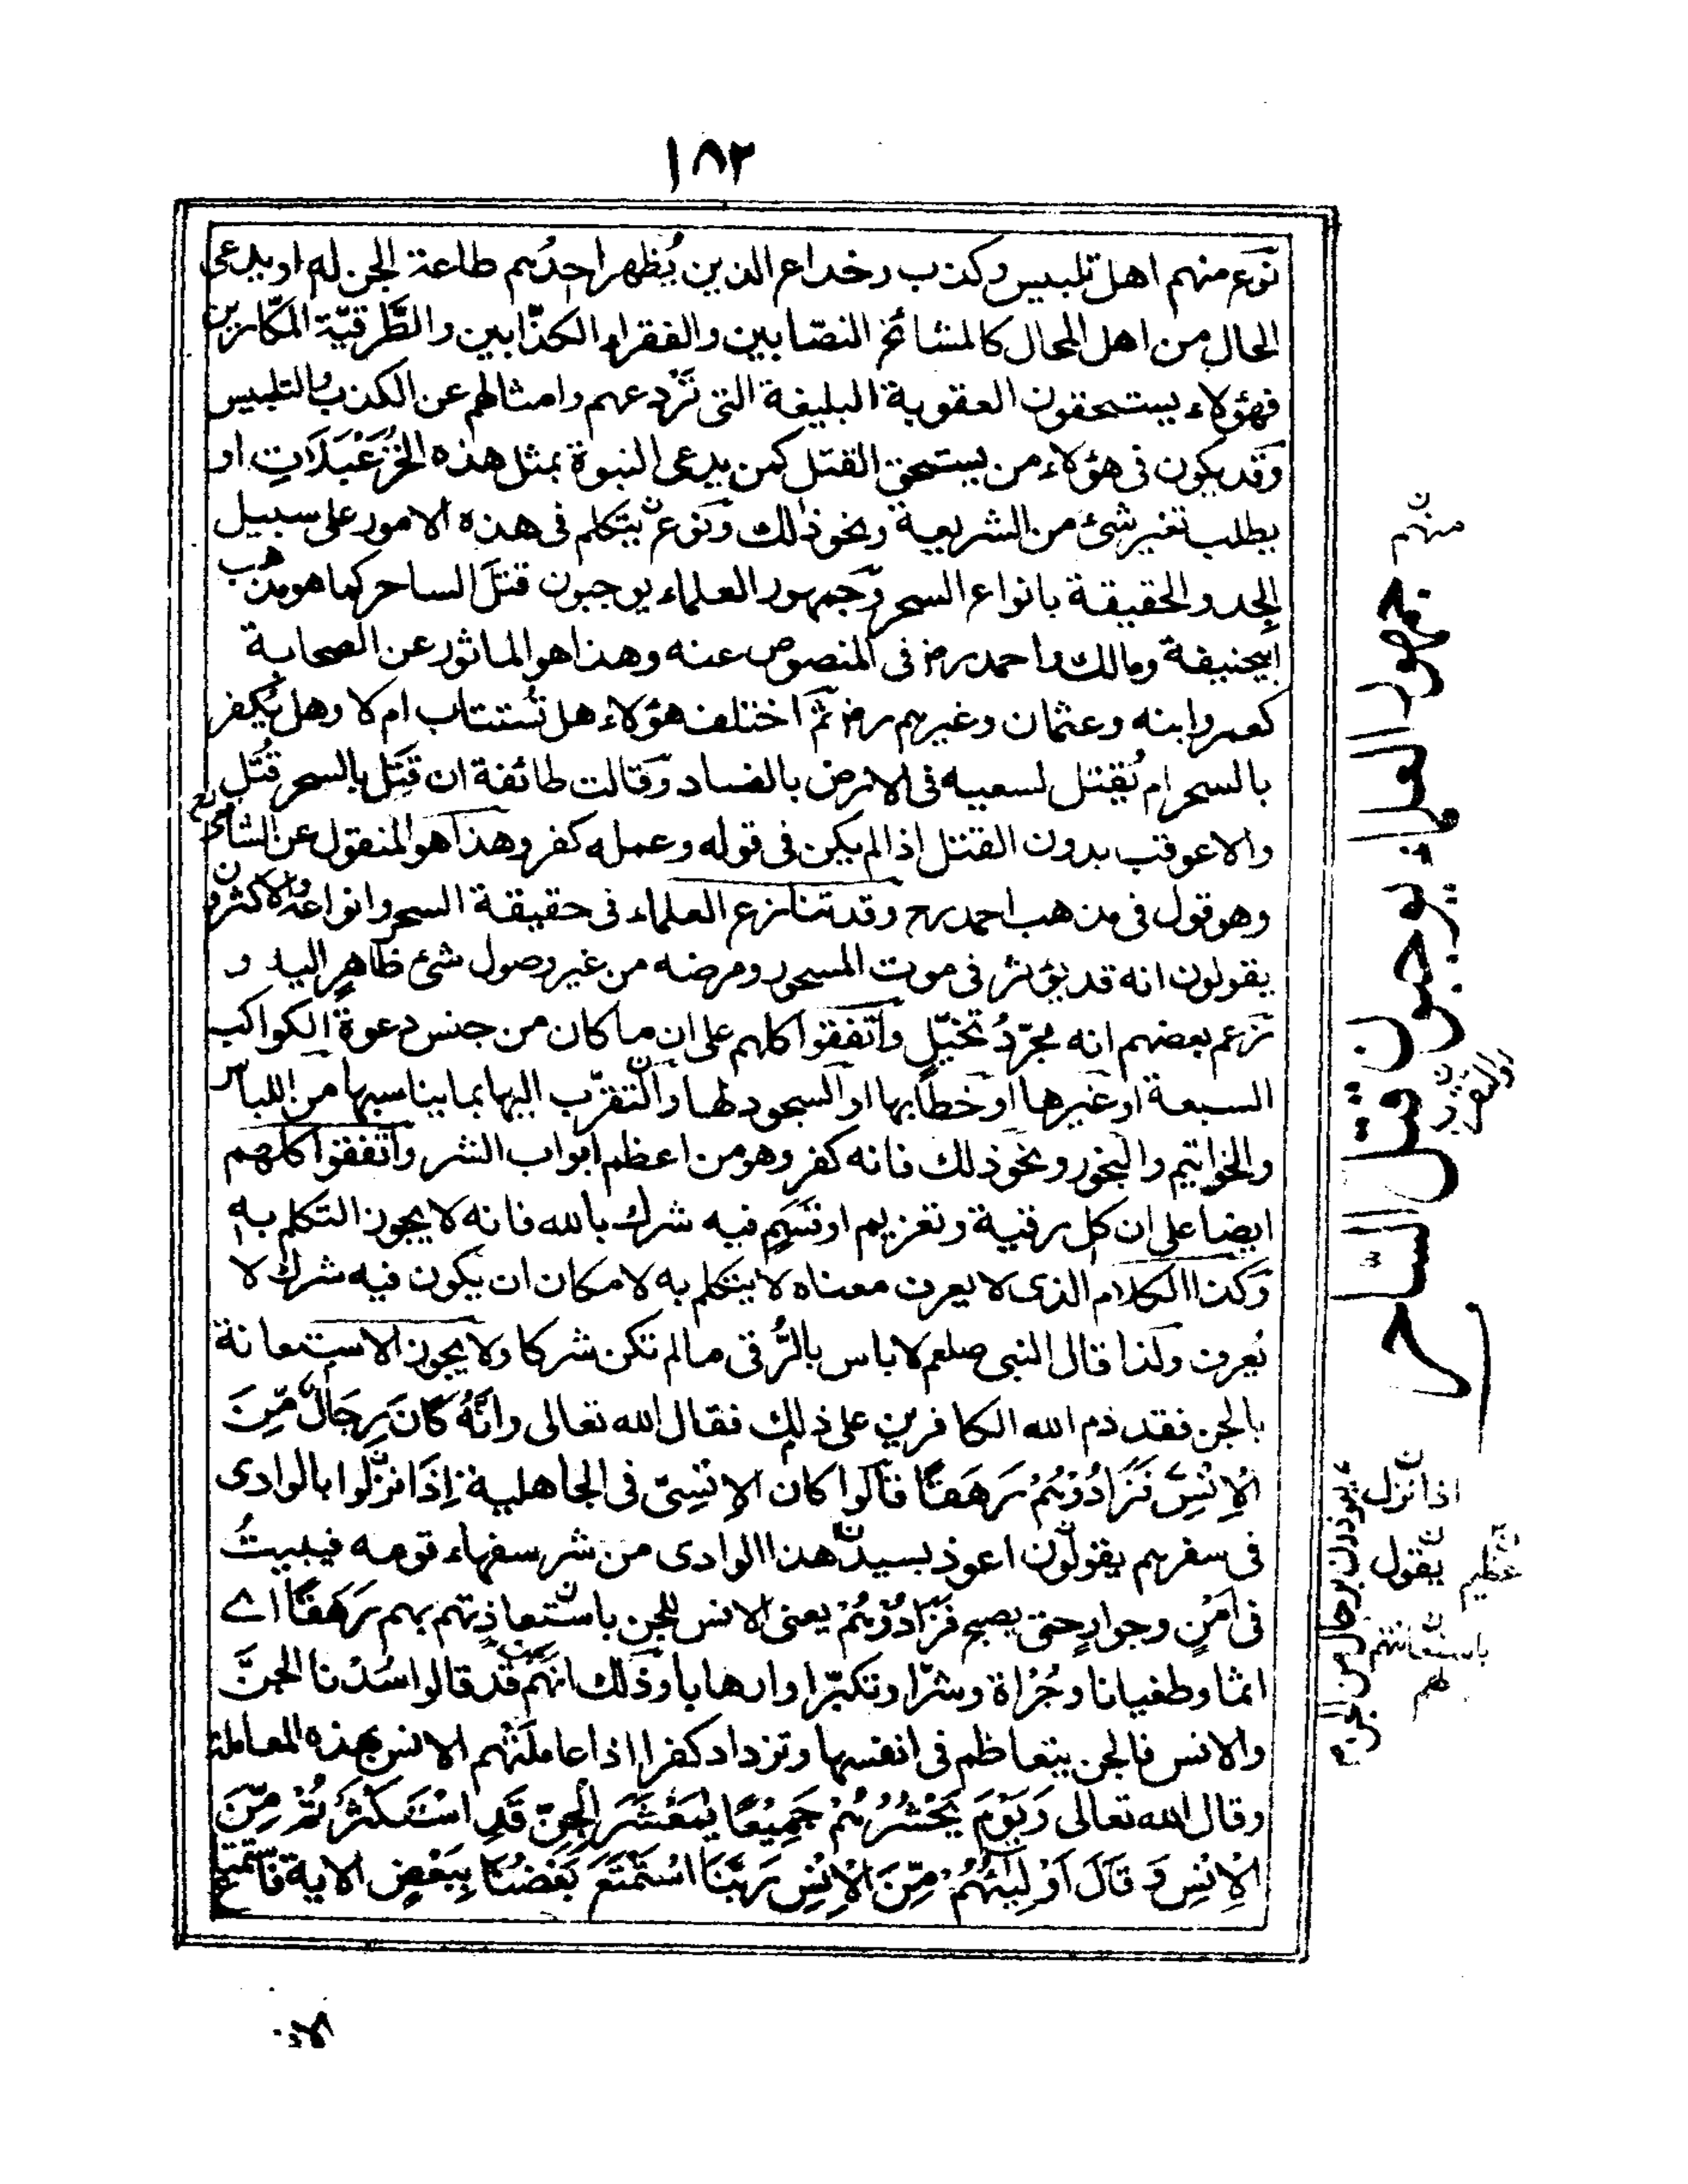 ١٨٢
نوع منهم اهل تلبيس وكذب وخداع الذين يُظهر احدُهم طاعة الجن له او يدعى
الحال من اهل المحال كالمشائخ النصّابين والفقراء الكذّابين والطُّرقيّة المكّارين
فهؤلاء يستحقون العقوبة البليغة التى تَرْدعهم وامثالهم عن الكذب والتلبيس
وقد يكون فى هؤلاء من يستحق القتل كمن يدعى النبوة بمثل هذه الخُزَعْبَلَاتِ او
يطلب تغير شئ من الشريعة ونحو ذلك ونوع يتكلم فى هذه الامور على سبيل
الجِد والحقيقة بانواع السحر وجمهور العلماء يوجبون قتلَ الساحر كما هو مذهب
ابيحنيفة ومالك واحمد رض فى المنصوص عنه وهذا هو الماثور عن الصحابة
كعمر وابنه وعثمان وغيرهم رض ثم اختلف هؤلاء هل تُستتاب ام لا وهل يُكفر
بالسحر ام يُقتل لسعيه فى الارض بالفساد وقالت طائفة ان قَتَل بالسحر قُتل
والا عوقب بدون القتل اذا لم يكن فى قوله وعمله كفر وهذا هو المنقول عن الشافعى
وهو قول فى مذهب احمد رح وقد تنازع العلماء فى حقيقة السحر وانواعه والاكثرون
يقولون انه قد يؤثر فى موت المسحور ومرضه من غير وصول شئ ظاهرٍ اليه و
زعم بعضهم انه مجرّدُ تخيّل واتفقوا كلهم على ان ما كان من جنس دعوة الكواكب
السبعة او غيرها او خطابها او السجود لها والتقرّب اليها بما يناسبها من اللباس
والخواتيم والبخور ونحو ذلك فانه كفر وهو من اعظم ابواب الشر واتفقوا كلهم
ايضا على ان كل رقية وتعزيم او قسَمٍ فيه شرك بالله فانه لا يجوز التكلم به
وكذا الكلام الذى لا يعرف معناه لا يتكلم به لامكان ان يكون فيه شرك لا
يُعرف ولذا قال النبى صلعم لا باس بالرُّقى ما لم تكن شركا ولا يجوز الاستعانة
بالجن فقد ذم الله الكافرين على ذلك فقال الله تعالى وانَّهُ كَانَ رِجَالٌ مِّنَ
الْاِنْسِ فَزَادُوْهُمْ رَهَقًا قالوا كان الاِنْسِىّ فى الجاهلية اِذَا نزلوا بالوادى
فى سفرهم يقولون اعوذ بسيد هذا الوادى من شر سفهاء قومه فيبيتُ
فى امْنٍ وجوارٍ حتى يصبح فَزَادُوْهُمْ يعنى الانس للجن باستعاذتهم بهم رَهَقًا اے
اثما وطغيانا وجُرْاة وشرّا وتكبّرا وارهابا وذلك انهم قد قالوا سُدْنا الجنَّ
والانس فالجن يتعاظم فى انفسها وتزداد كفرا اذا عاملَتْهم الانس بهذه المعاملة
وقال الله تعالى وَيَوْمَ يَحْشُرُهُمْ جَمِيْعًا يٰمَعْشَرَ الْجِنِّ قَدِ اسْتَكْثَرْتُمْ مِّنَ
الْاِنْسِ وَ قَالَ اَوْلِيٰٓئُهُمْ مِّنَ الْاِنْسِ رَبَّنَا اسْتَمْتَعَ بَعْضُنَا بِبَعْضٍ الاية فاستمتع
منهم
جمهور العلماء يوجبون قتل الساحر
اذا نزل
يعوذون برجال من الجن
يقول
عظيم
باستعانتهم
لهم